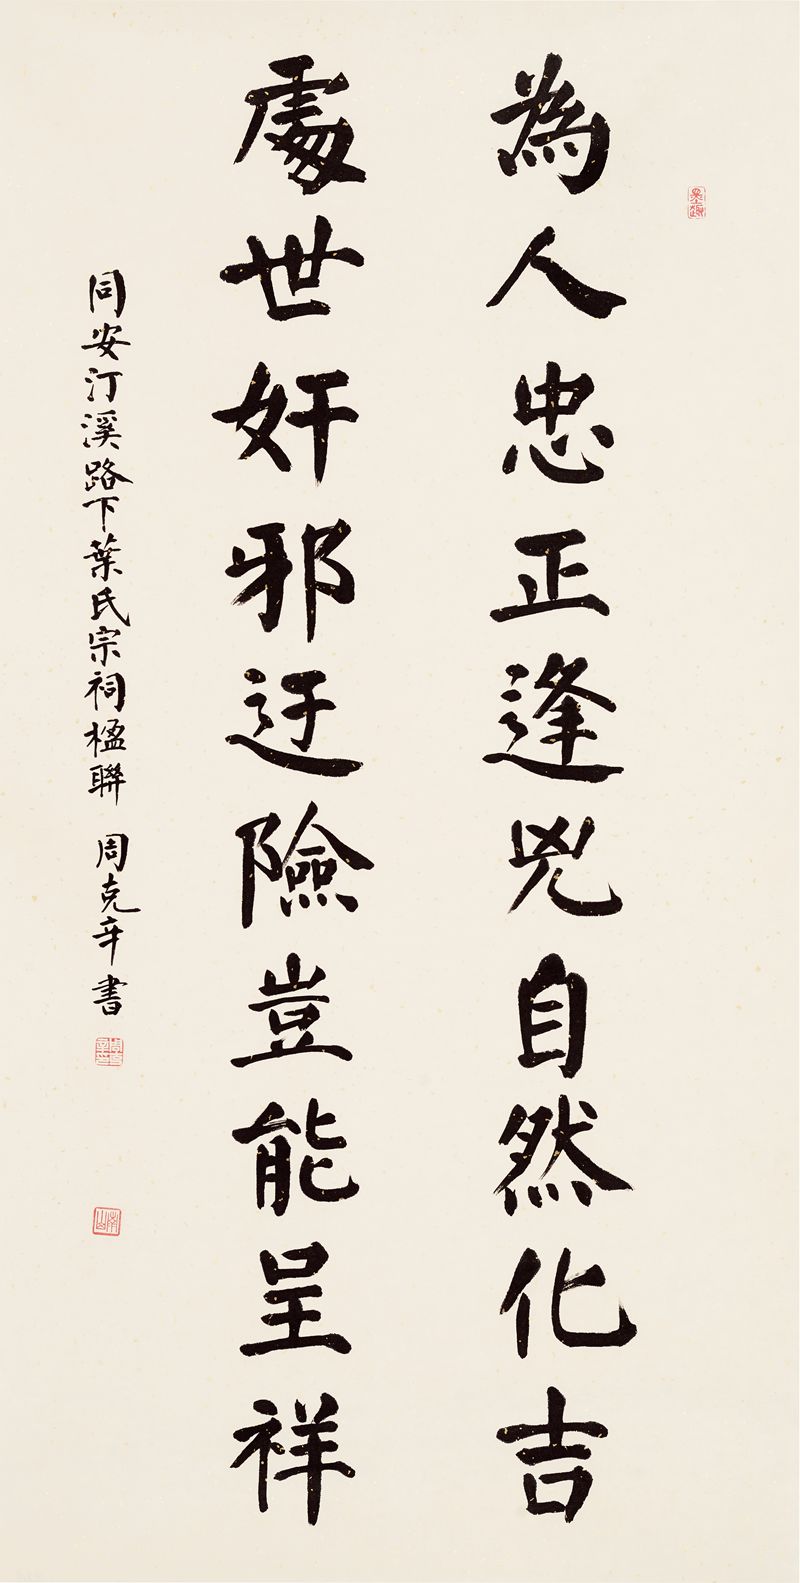 為人忠正逢兇自然化吉
處世奸邪迂險豈能呈祥
同安汀溪路下葉氏宗祠楹聯 周克辛書